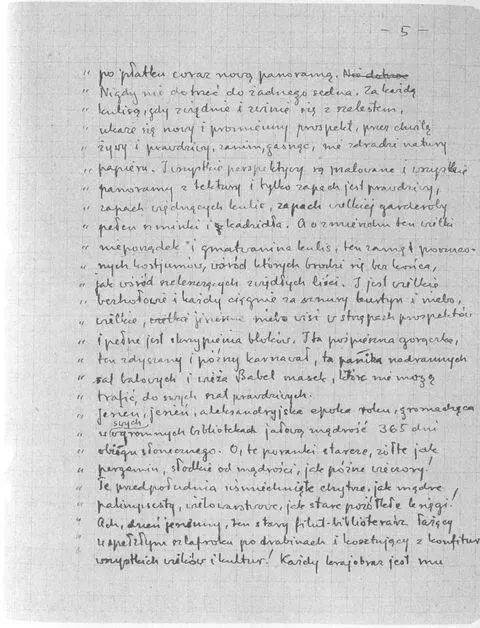 - 5 -
" po płatku coraz nową panoramą. Nie dobrze
" Nigdy nie dotrzeć do żadnego sedna. Za każdą
" kulisą, gdy zwiędnie i zwinie się z szelestem,
" ukaże się nowy i promienny prospekt, przez chwilę
" żywy i prawdziwy, zanim, gasnąc, nie zdradzi natury
" papieru. I wszystkie perspektywy są malowane i wszystkie
" panoramy z tektury i tylko zapach jest prawdziwy,
" zapach więdnących kulis, zapach wielkiej garderoby
" pełen szminki i kadzidła. A o zmierzchu ten wielki
" nieporządek i gmatwanina kulis, ten zamęt porzuco-
" nych kostjumów, wśród których brodzi się bez końca,
" jak wśród szeleszczących zwiędłych liści. I jest wielkie
" bezhołowie i każdy ciągnie za sznury kurtyn i niebo,
" wielkie, jesienne niebo wisi w strzępach prospektów
" i pełne jest skrzypienia bloków. I ta pośpieszna gorączka,
" ten zdyszany i późny karnawał, ta panika nadrannych
" sal balowych i wieża Babel masek, które nie mogą
" trafić do swych szat prawdziwych.
" Jesień, jesień, aleksandryjska epoka roku, gromadząca
" w swych ogromnych bibliotekach jałową mądrość 365 dni
" obiegu słonecznego. O, te poranki starcze, żółte jak
" pergamin, słodkie od mądrości, jak późne wieczory!
" Te przedpołudnia uśmiechnięte chytrze, jak mądre
" palimpsesty, wielowarstwowe, jak stare pożółkłe księgi!
" Ach, dzień jesienny, ten stary filut-bibliotekarz, łażący
" w spełzłym szlafroku po drabinach i kosztujący z konfitur
" wszystkich wieków i kultur! Każdy krajobraz jest mu